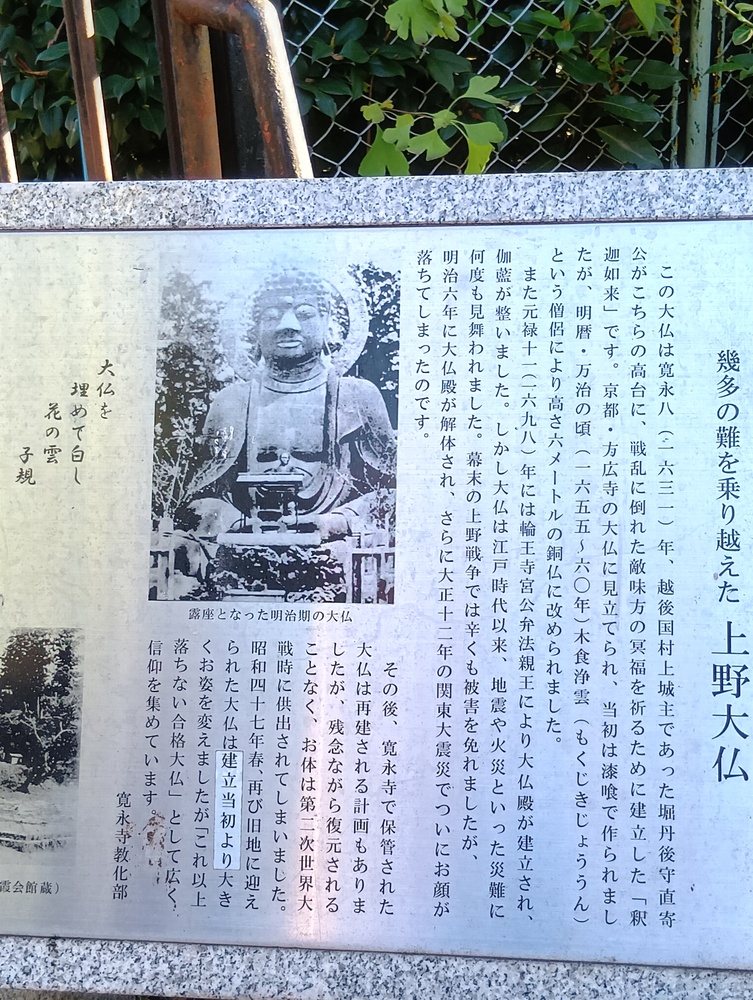 幾多の難を乗り越えた 上野大仏
この大仏は寛永八（一六三一）年、越後国村上城主であった堀丹後守直寄
公がこちらの高台に、戦乱に倒れた敵味方の冥福を祈るために建立した「釈
迦如来」です。京都・方広寺の大仏に見立てられ、当初は漆喰で作られまし
たが、明暦・万治の頃（一六五五～六〇年）木食浄雲（もくじきじょううん）
という僧侶により高さ六メートルの銅仏に改められました。
また元禄十一（一六九八）年には輪王寺宮公弁法親王により大仏殿が建立され、
伽藍が整いました。しかし大仏は江戸時代以来、地震や火災といった災難に
何度も見舞われました。幕末の上野戦争では辛くも被害を免れましたが、
明治六年に大仏殿が解体され、さらに大正十二年の関東大震災でついにお顔が
落ちてしまったのです。
露座となった明治期の大仏
その後、寛永寺で保管された
大仏は再建される計画もありま
したが、残念ながら復元される
ことなく、お体は第二次世界大
戦時に供出されてしまいました。
昭和四十七年春、再び旧地に迎え
られた大仏は建立当初より大き
くお姿を変えましたが「これ以上
落ちない合格大仏」として広く
信仰を集めています。
寛永寺教化部
大仏を
埋めて白し
花の雲
子規
霞会館蔵）